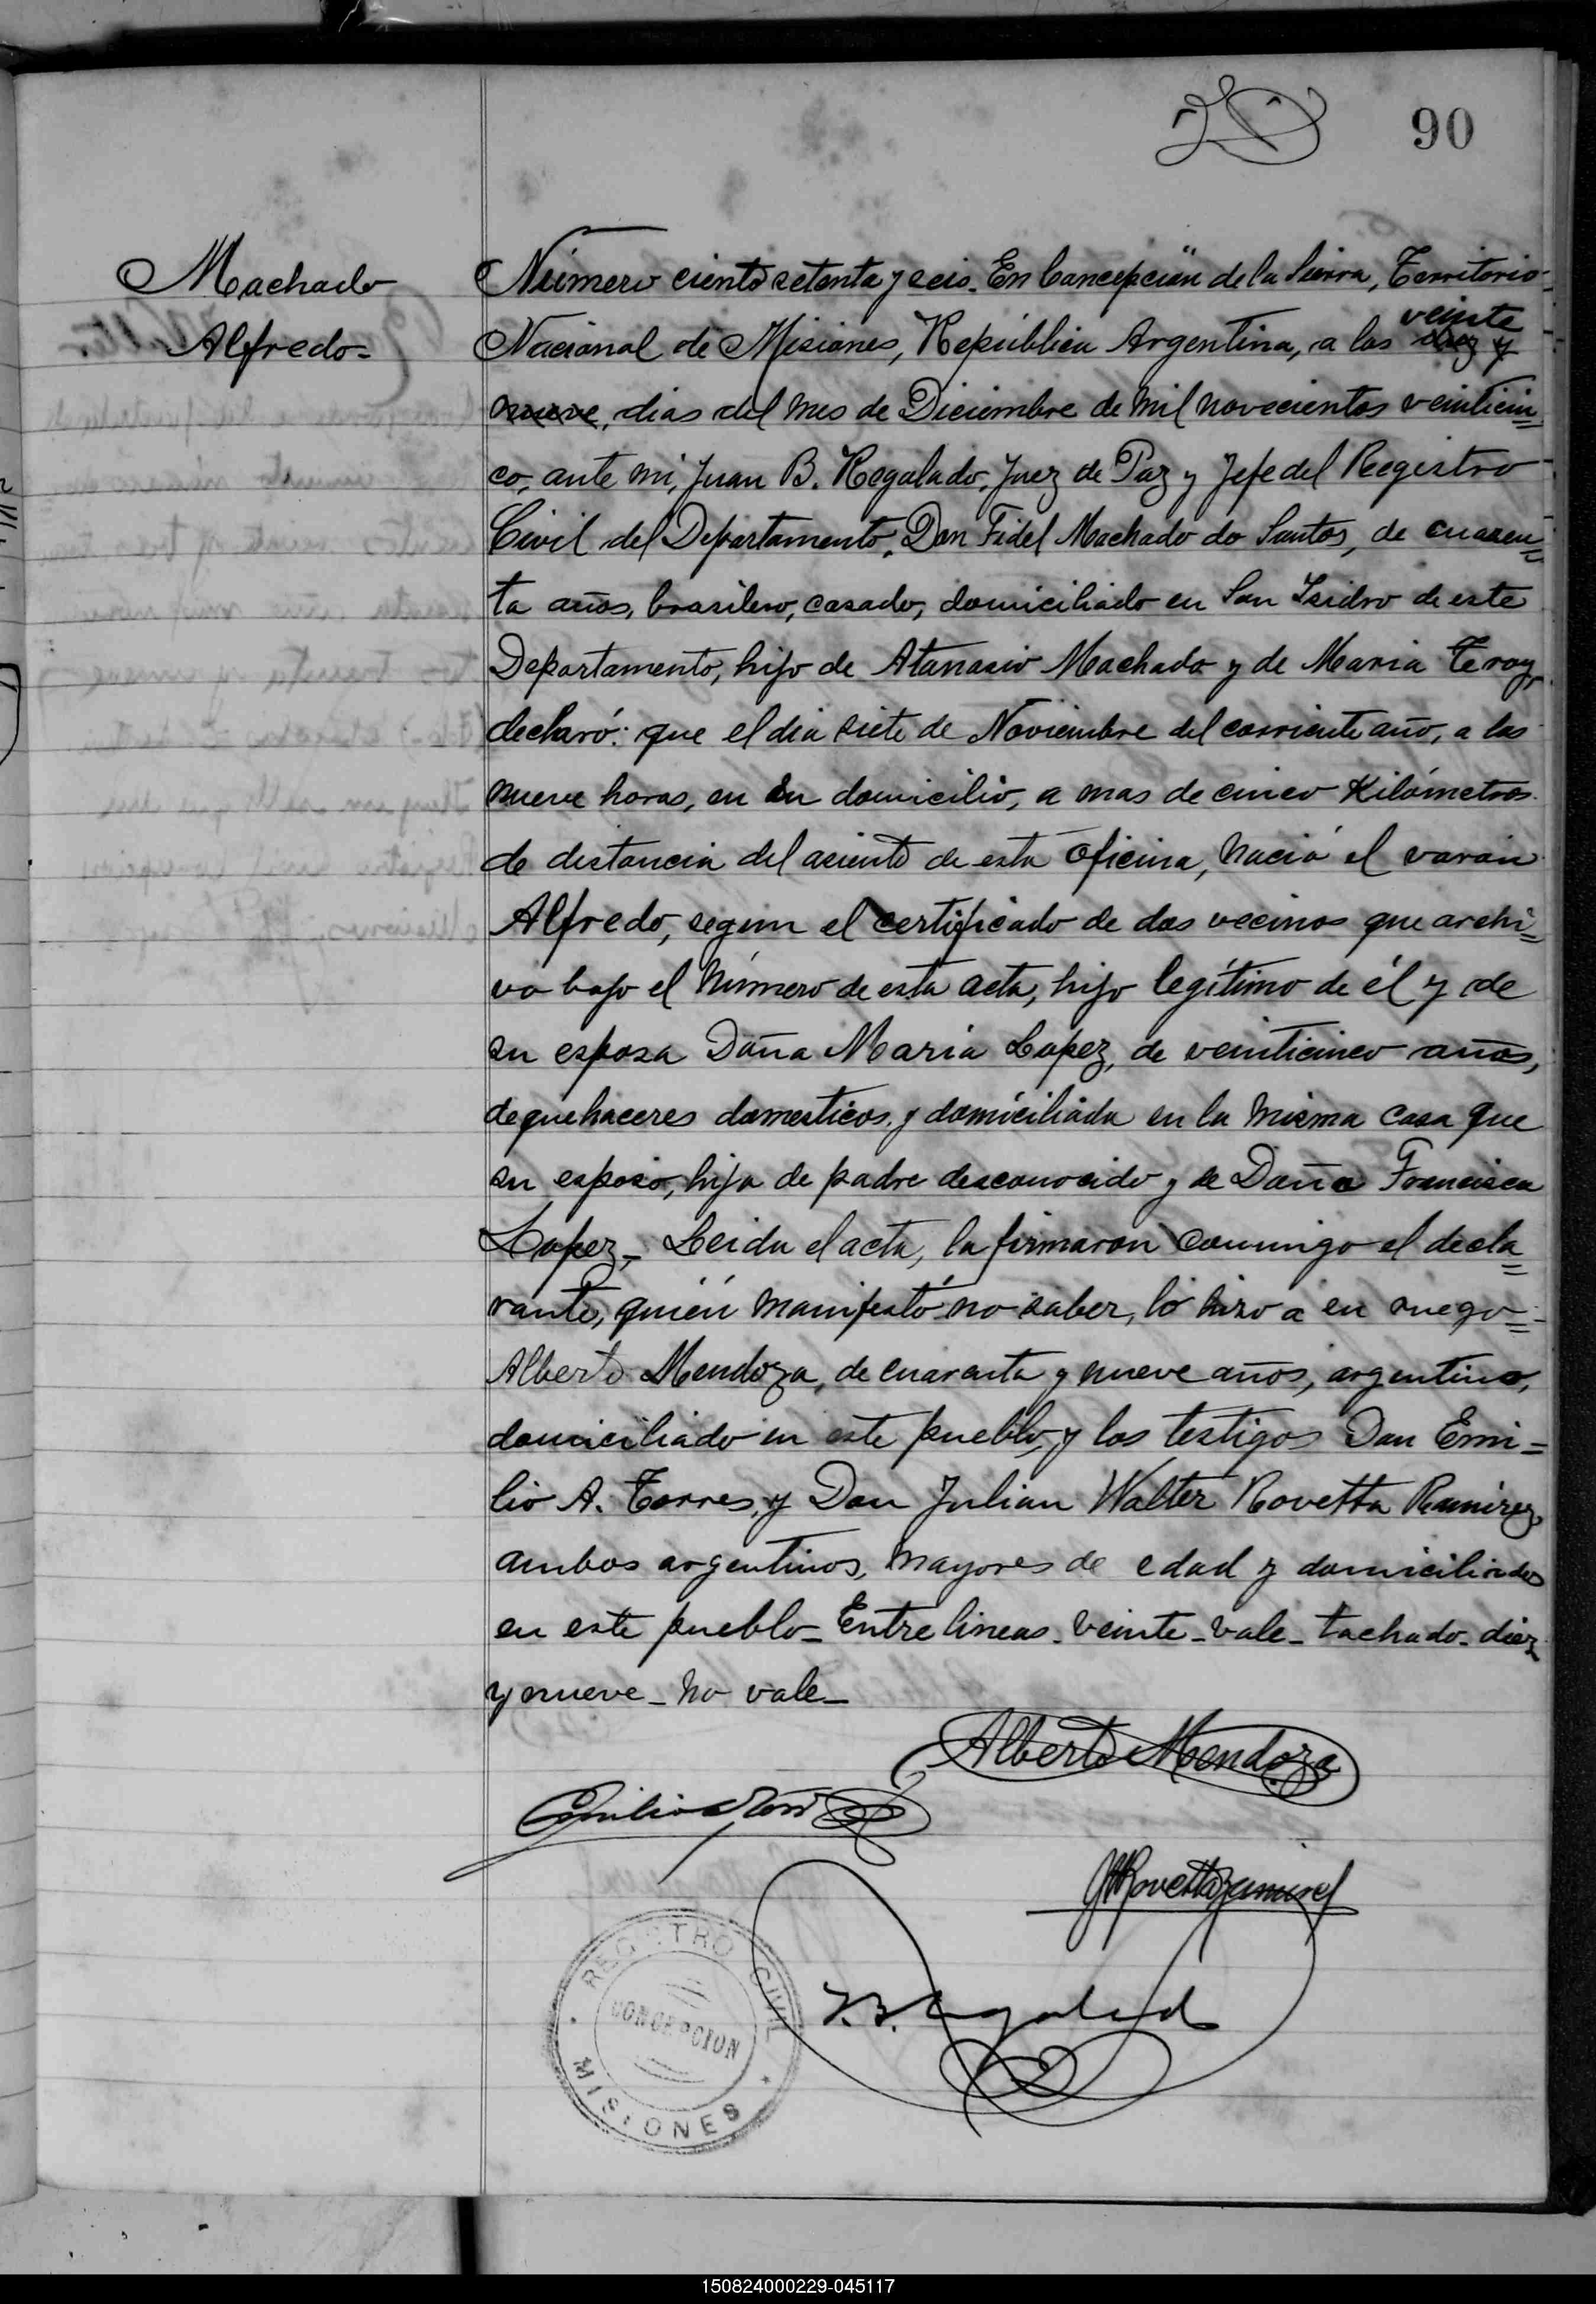 90
Machado
Alfredo=
Número ciento setenta y seis. En Concepción de la Sierra, Territorio
veinte
Nacional de Misiones, República Argentina, a los diez y
nueve, dias del mes de Diciembre de mil novecientos veinticin=
co, ante mi, Juan B. Regalado, Juez de Paz y Jefe del Registro
Civil del Departamento, Don Fidel Machado do Santos, de cuaren=
ta años, brasilero, casado, domiciliado en San Isidro de este
Departamento, hijo de Atanasio Machado y de Maria Teroy,
declaró: que el dia siete de Noviembre del corriente año, a las
nueve horas, en su domicilio, a mas de cinco Kilómetros
de distancia del asiento de esta oficina, nació el varón
Alfredo, segun el certificado de dos vecinos que archi=
vo bajo el número de esta acta, hijo legítimo de él y de
su esposa Doña Maria Lopez, de veinticinco años,
de quehaceres domesticos, y domiciliada en la misma casa que
su esposo, hija de padre desconocido y de Doña Francisca
Lopez,- Leida el acta, la firmaron conmigo el decla=
rante, quién manifestó no saber, lo hizo a su ruego=
Alberto Mendoza, de cuarenta y nueve años, argentino,
domiciliado en este pueblo, y los testigos Don Emi=
lio A. Torres, y Don Julian Walter Rovetta Ramirez,
ambos argentinos, mayores de edad y domiciliados
en este pueblo- Entre lineas- veinte- vale- tachado- diez
y nueve- no vale-
Alberto Mendoza
Emilio A Torres
JWRovetta Ramirez
J. B. Regalado
REGISTRO CIVIL
CONCEPCION
MISIONES
150824000229-045117